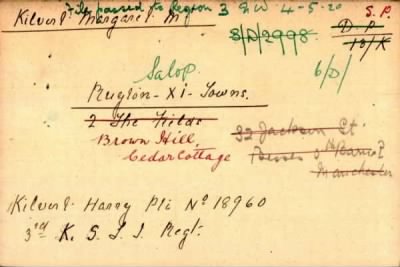 File passed to Region 3 S W 4-5-20
S.P.
Kilvert Margaret M
D.P.
S/D/2998.
13/K
Salop.
6/D/
Ruyton-XI-Towns.
2 The Fields
Brown Hill,
32 Jackson St
Cedar Cottage
Manchester
Kilvert Harry Pte No 18960
3rd K. S. L. I. Regt.